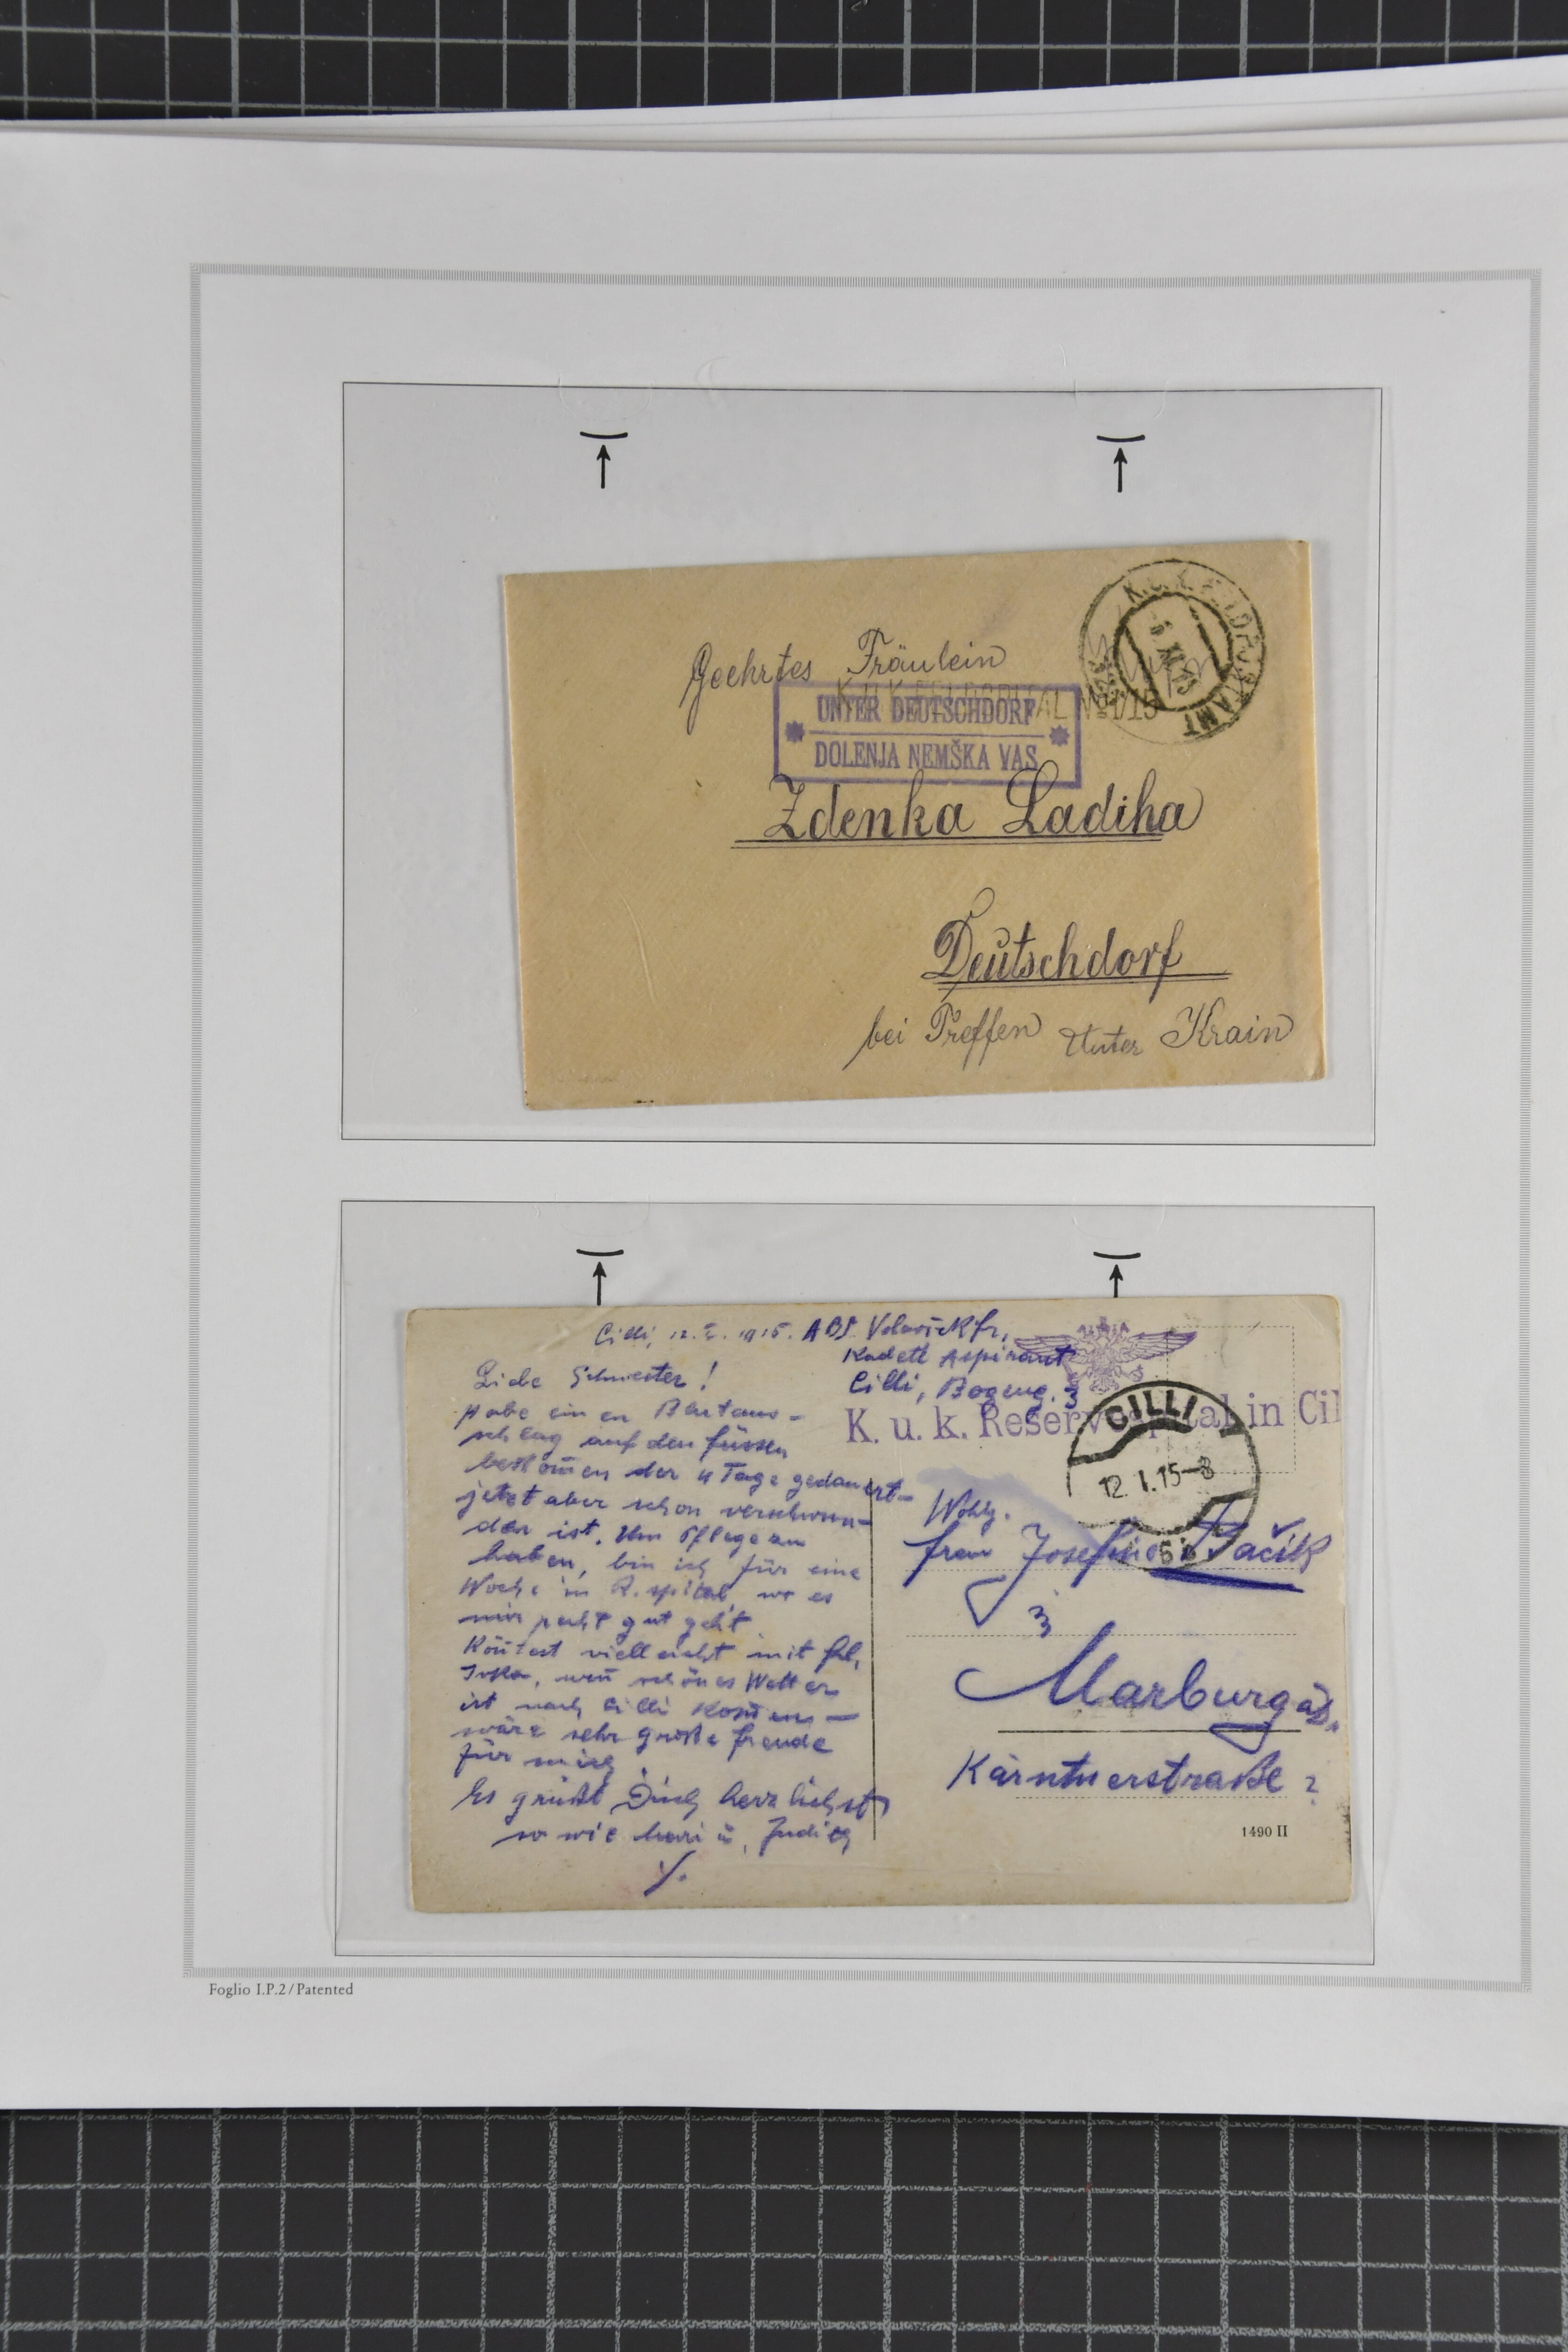 Geehrtes Fräulein
K.u.K. FELDPOSTAMT
6. XI. 15
K.u.K. FELDSPITAL No 1/15
UNTER DEUTSCHDORF
DOLENJA NEMŠKA VAS
Zdenka Ladiha
Deutschdorf
bei Treffen Unter Krain
Cilli, 12. I. 1915. Abs.
Kadett Aspirant
Cilli, Bogeng. 3
K. u. k. Reservespital in Cil
CILLI
12. I. 15-8
Liebe Schwester!
Habe einen Blutaus-
schlag auf den füssen
bekom̄en der 4 Tage gedauert-
jetzt aber schon verschwun-
den ist. Um Pflege zu
haben, bin ich für eine
Woche in R. spital, wo es
mir recht gut geht
Kön̄test vielleicht mit Frl.
wen̄ schönes Wetter
ist nach Cilli kom̄en —
wäre sehr große freude
für mich
Es grüßt Dich herzlichst
so wie
Wohlg.
frau Josefine Pačik
3
Marburg a/D.
Kärntnerstraße
1490 II
Foglio I.P.2/Patented